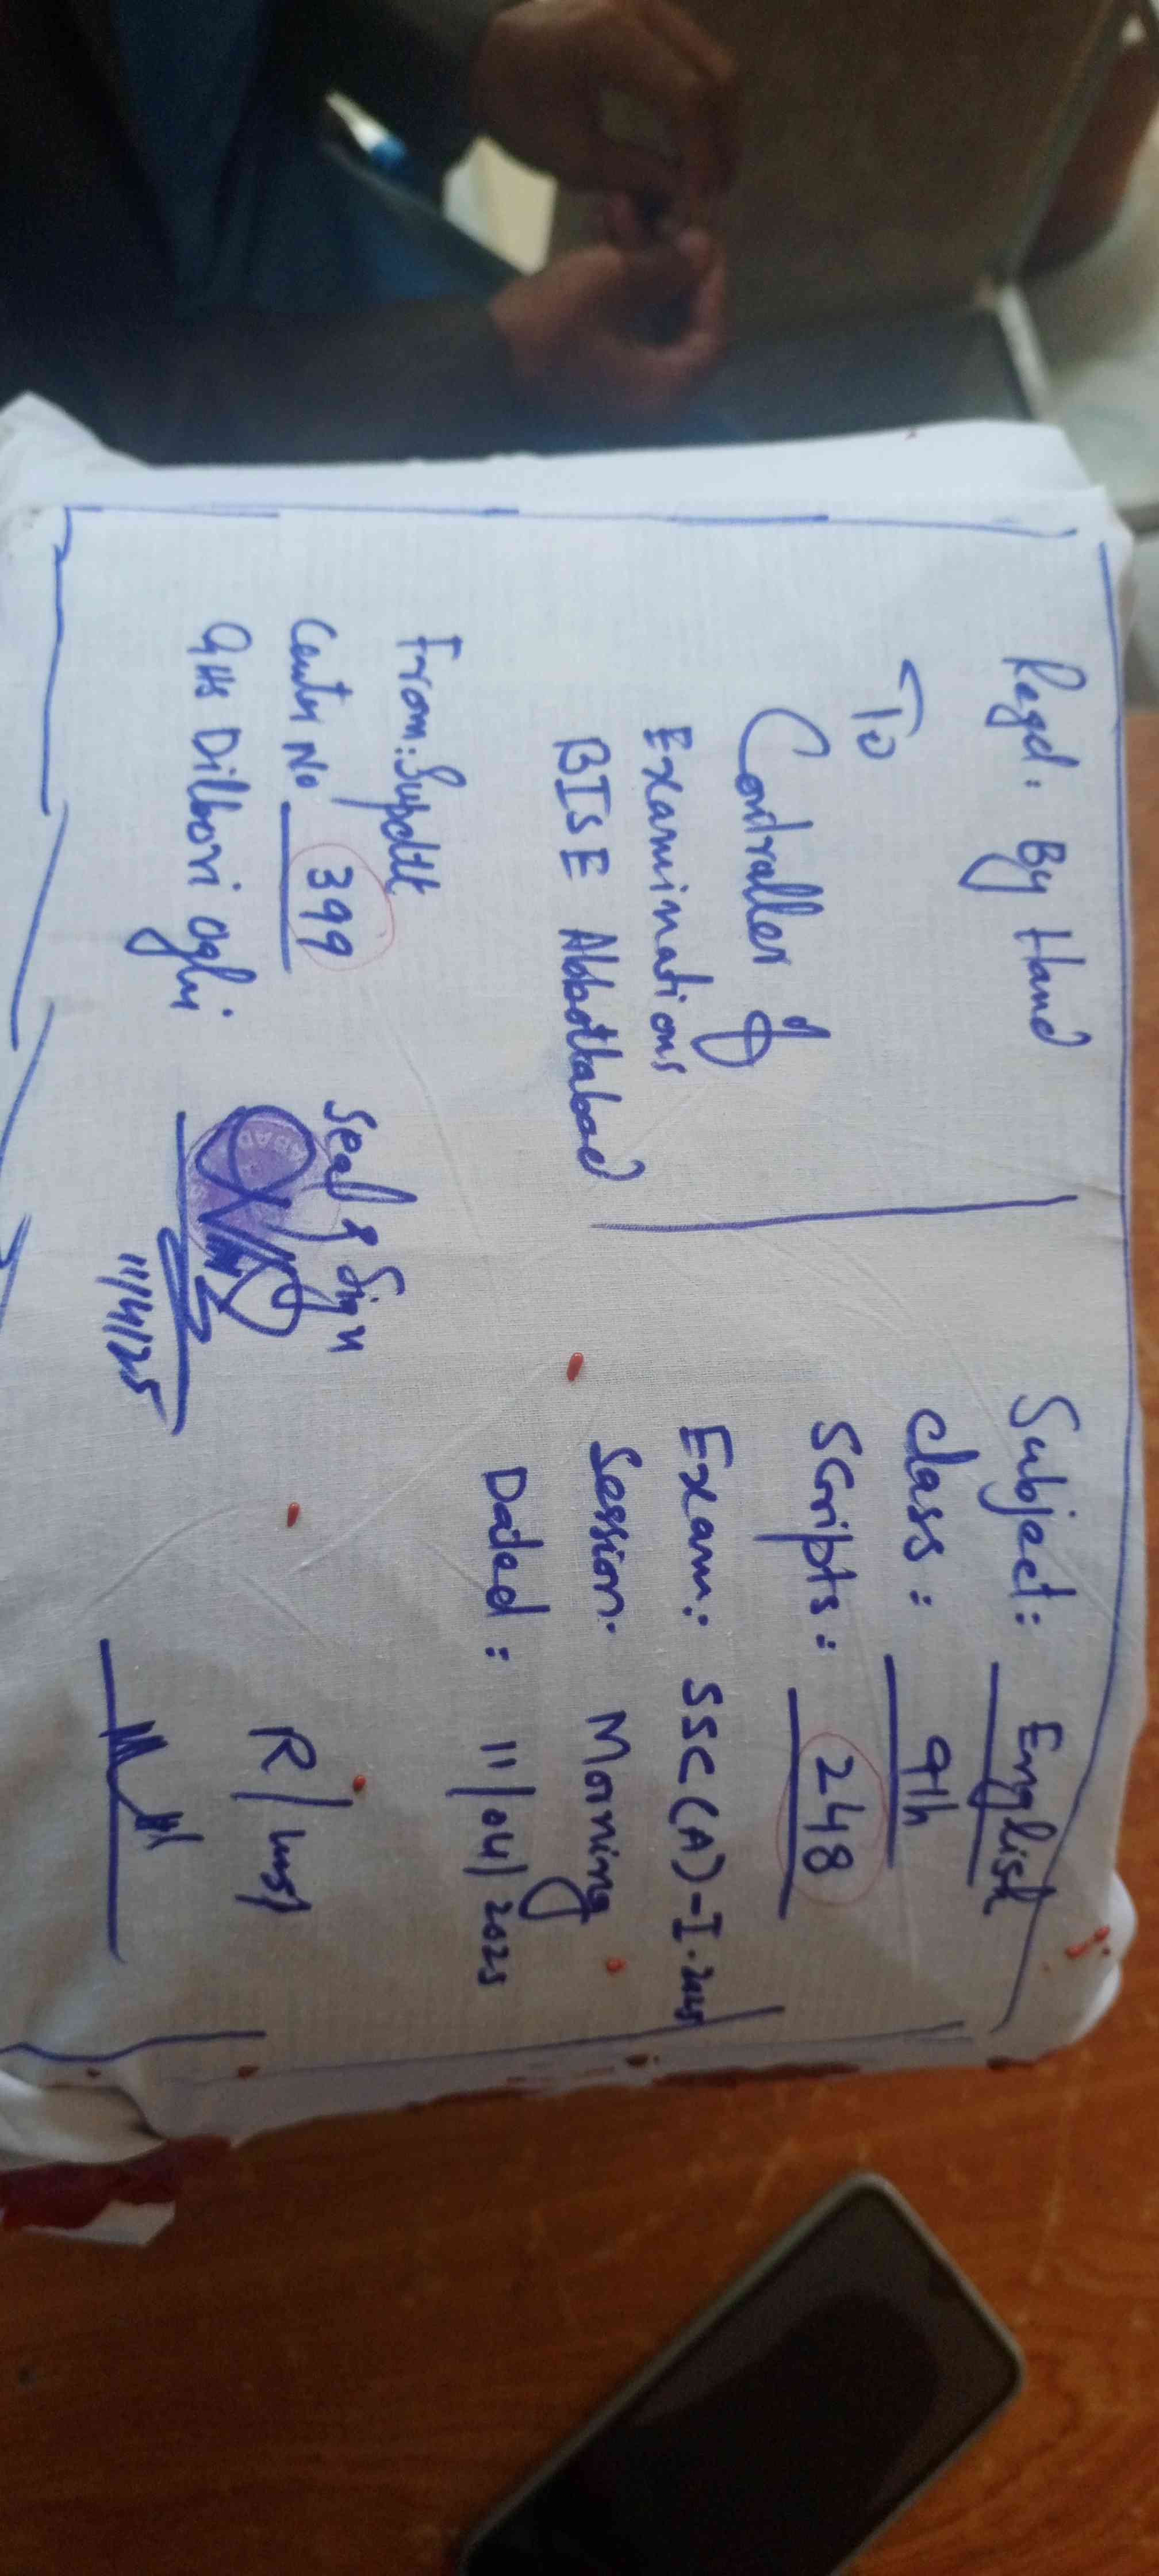 Regd. By Hand
To
Controller of
Examinations
BISE Abbottabad
From: Supdtt
Center No 399
GHS Dilbori Oghi
Seal & Sign
11/4/25
Subject: English
Class: 9th
Scripts: 248
Exam: SSC(A)-I-2025
Session. Morning
Dated: 11/04/2025
R/